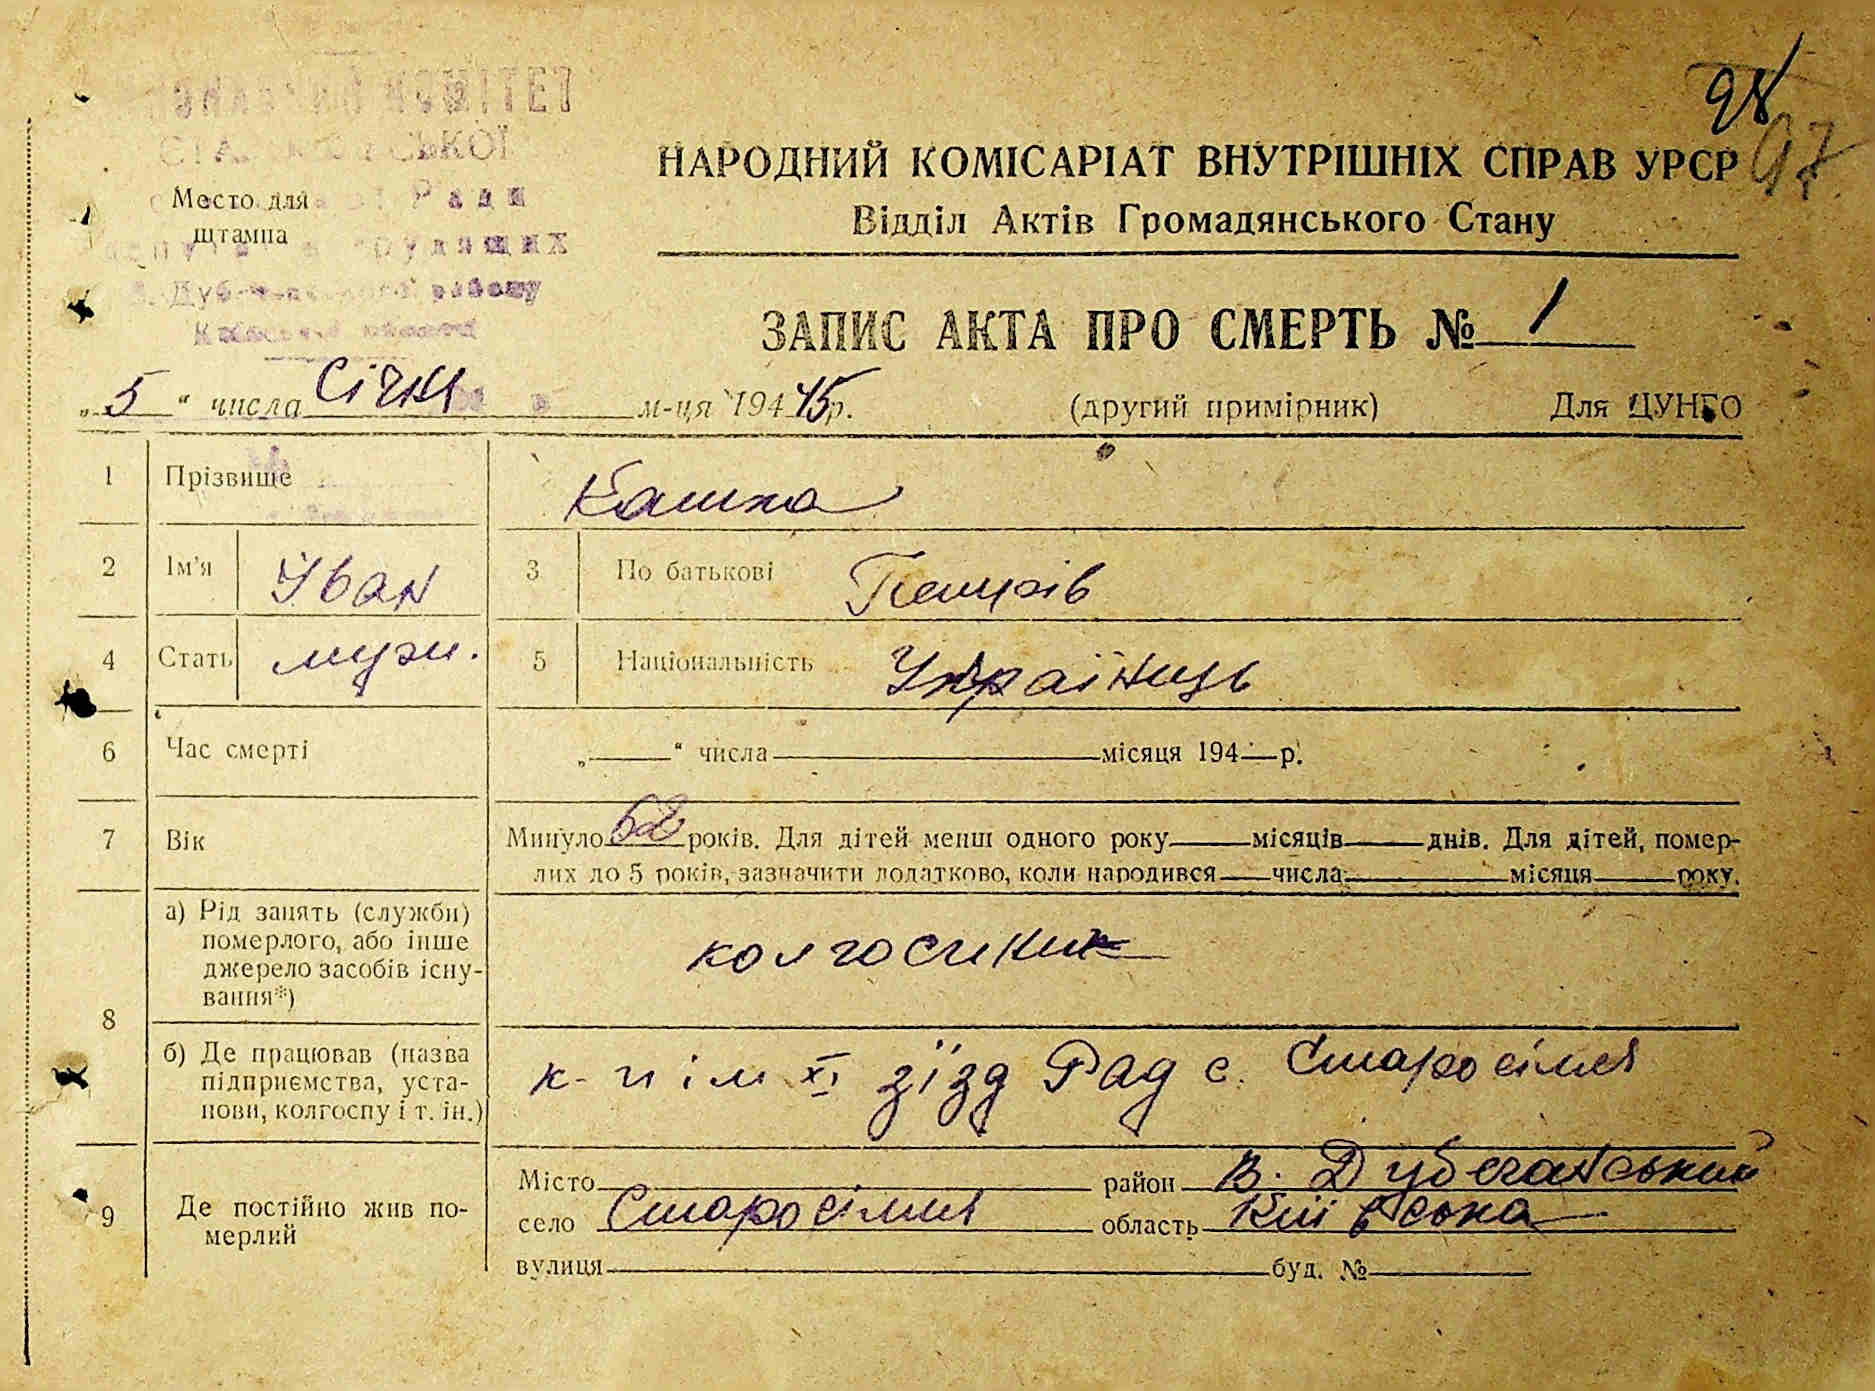 98
97
КОМІТЕТ
Ради
Место для
штампа
району
НАРОДНИЙ КОМІСАРІАТ ВНУТРІШНІХ СПРАВ УРСР
Відділ Актів Громадянського Стану
ЗАПИС АКТА ПРО СМЕРТЬ № 1
„ 5 “ числа Січня м-ця 194 45 р. (другий примірник) Для ЦУНГО
1 Прізвище Кашка
2 Ім'я Іван 3 По батькові
4 Стать муж. 5 Національність Українець
6 Час смерті „ “ числа місяця 194 р.
7 Вік Минуло 62 років. Для дітей менш одного року місяців днів. Для дітей, помер-
лих до 5 років, зазначити додатково, коли народився числа місяця року.
8 а) Рід занять (служби)
померлого, або інше
джерело засобів існу-
вання*)
колгоспник
б) Де працював (назва
підприємства, уста-
нови, колгоспу і т. ін.)
к-п ім XI зїзд Рад с. Старосілля
9 Де постійно жив по-
мерлий
Місто район В. Дубечанський
село Старосілля область Київська
вулиця буд. №